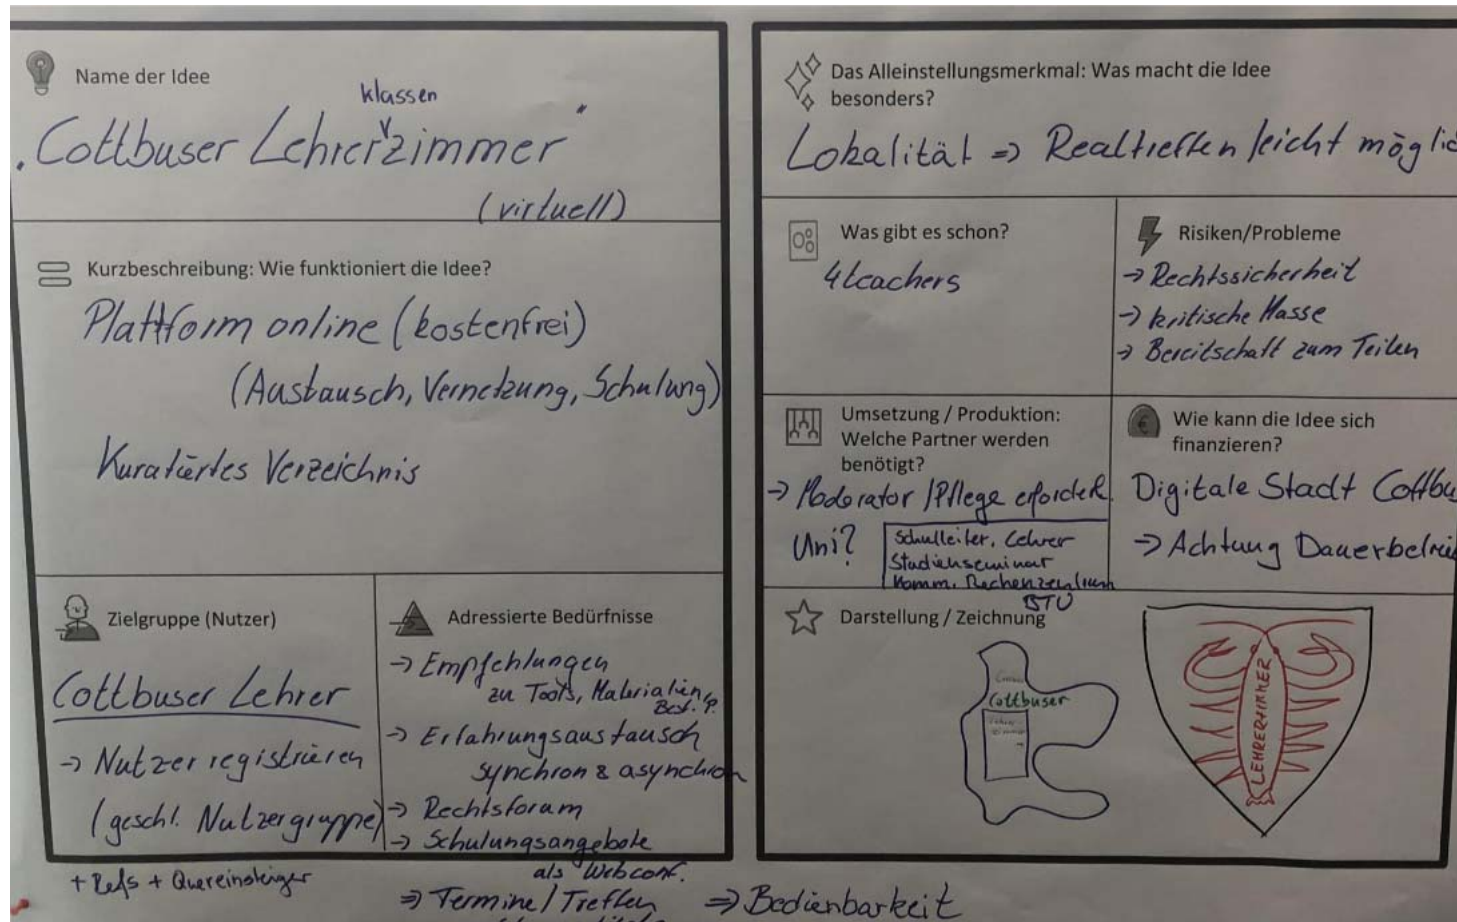 Name der Idee
klassen
„Cottbuser Lehrer zimmer"
(virtuell)
Kurzbeschreibung: Wie funktioniert die Idee?
Plattform online (kostenfrei)
(Austausch, Vernetzung, Schulung)
Kuratiertes Verzeichnis
Zielgruppe (Nutzer)
Cottbuser Lehrer
→ Nutzer registrieren
(geschl. Nutzergruppe)
+ Refs + Quereinsteiger
Adressierte Bedürfnisse
→ Empfehlungen
zu Tools, Materialien,
Best. P.
→ Erfahrungsaustausch
synchron & asynchron
→ Rechtsforum
→ Schulungsangebote
als Webconf.
⇒ Termine/Treffen
⇒ Bedienbarkeit
Das Alleinstellungsmerkmal: Was macht die Idee
besonders?
Lokalität ⇒ Realtreffen leicht möglic
Was gibt es schon?
4teachers
Risiken/Probleme
→ Rechtssicherheit
→ kritische Masse
→ Bereitschaft zum Teilen
Umsetzung / Produktion:
Welche Partner werden
benötigt?
→ Moderator/Pflege erforderl.
Uni?
Schulleiter, Lehrer
Studienseminar
Komm. Rechenzentrum
BTU
Wie kann die Idee sich
finanzieren?
Digitale Stadt Cottbu
→ Achtung Dauerbetrie
Darstellung / Zeichnung
Cottbuser
LEHRERZIMMER